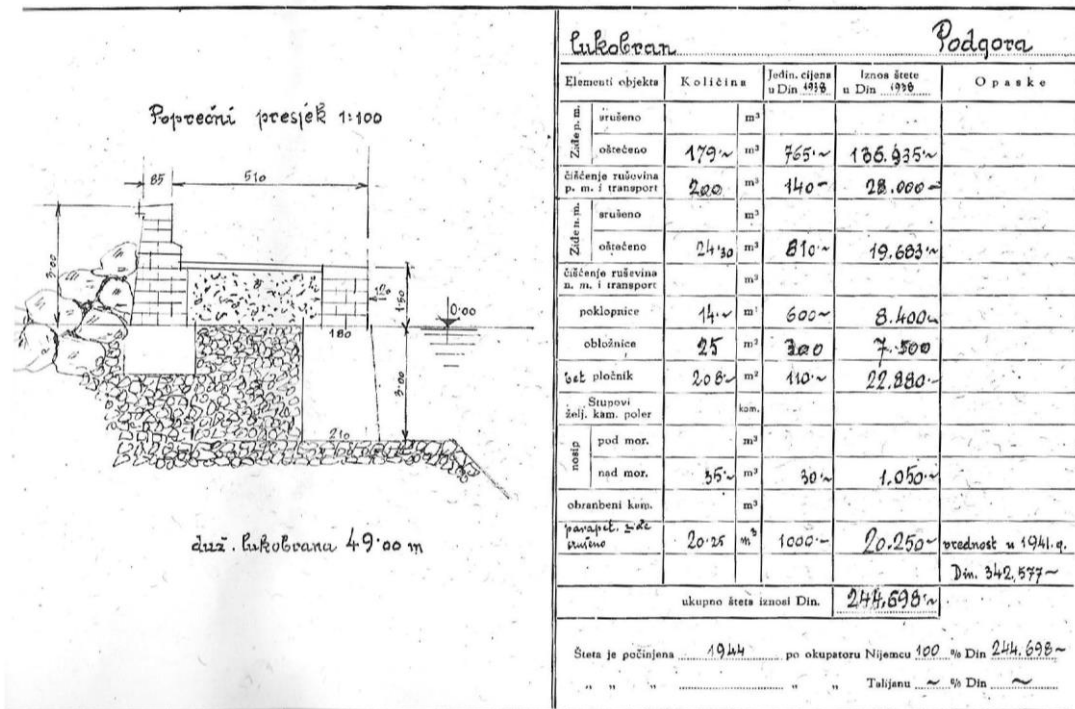 Poprečni presjek 1:100
85
510
3.00
1.50
0.00
180
3.00
210
duž. lukobrana 49.00 m
lukobran Podgora
Elementi objekta Količina Jedin. cijena u Din 1938 Iznos štete u Din 1938 Opaske
Ziđe p. m. srušeno m³
oštećeno 179.~ m³ 765.~ 136.935.~
čišćenje ruševina p. m. i transport 200 m³ 140~ 28.000~
Ziđe n. m. srušeno m³
oštećeno 24.30 m³ 810.~ 19.683.~
čišćenje ruševina n. m. i transport m³
poklopnice 14.~ 600~ 8.400~
obložnice 25 300 7.500
bet pločnik 208~ m² 110.~ 22.880.-
Stupovi želj. kam. poler kom.
nasip pod mor. m³
nad mor. 35.~ m³ 30.~ 1.050.~
obranbeni kam. m³
parapet. ziđe srušeno 20.25 m³ 1000.- 20.250~ vrednost u 1941.g.
Din. 342,577~
ukupno šteta iznosi Din. 244,698.~
Šteta je počinjena 1944 po okupatoru Nijemcu 100 % Din 244.698~
" " " " " Talijanu ~ % Din ~